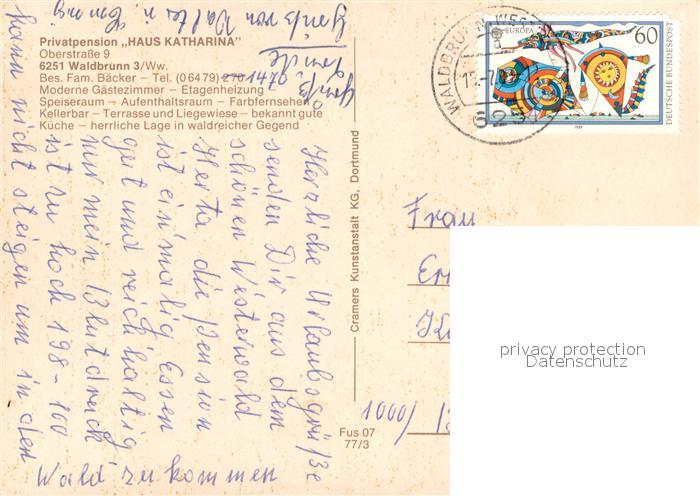 Privatpension „HAUS KATHARINA"
Oberstraße 9
6251 Waldbrunn 3/Ww.
Bes. Fam. Bäcker – Tel. (06479)
Moderne Gästezimmer – Etagenheizung
Speiseraum – Aufenthaltsraum – Farbfernseher
Kellerbar – Terrasse und Liegewiese – bekannt gute
Küche – herrliche Lage in waldreicher Gegend
Herzliche Urlaubsgrüße
senden Dir aus dem
schönen Westerwald
Herta die Pension
ist einmalig Essen
gut und reichhaltig
nur mein Blutdruck
ist zu hoch 198-100
kann nicht steigen um in den
Wald zu kommen
Grüße von Walter
Cramers Kunstanstalt KG, Dortmund
Fus 07
77/3
WALDBRUNN
EUROPA
60
DEUTSCHE BUNDESPOST
1989
Frau
1000/
privacy protection
Datenschutz